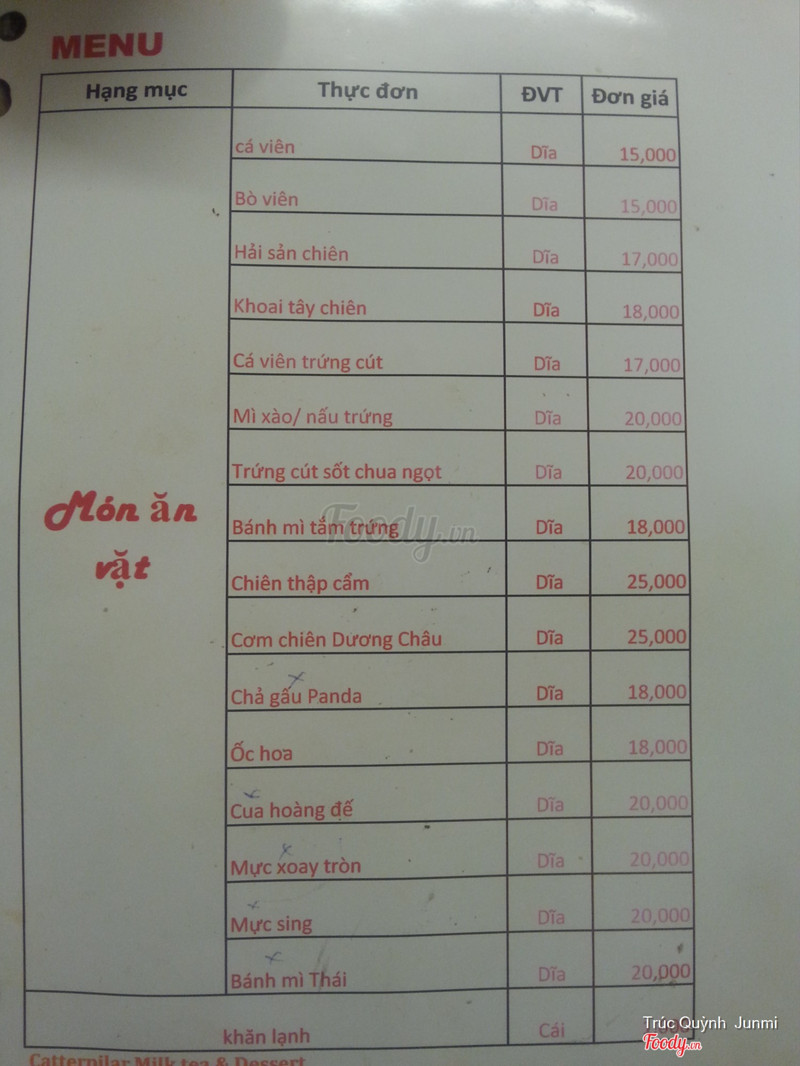 MENU
Hạng mục Thực đơn ĐVT Đơn giá
cá viên Dĩa 15,000
Bò viên Dĩa 15,000
Hải sản chiên Dĩa 17,000
Khoai tây chiên Dĩa 18,000
Cá viên trứng cút Dĩa 17,000
Mì xào/ nấu trứng Dĩa 20,000
Trứng cút sốt chua ngọt Dĩa 20,000
Món ăn
vặt
Bánh mì tắm trứng Dĩa 18,000
Foody.vn
Chiên thập cẩm Dĩa 25,000
Cơm chiên Dương Châu Dĩa 25,000
Chả gấu Panda Dĩa 18,000
Ốc hoa Dĩa 18,000
Cua hoàng đế Dĩa 20,000
Mực xoay tròn Dĩa 20,000
Mực sing Dĩa 20,000
Bánh mì Thái Dĩa 20,000
khăn lạnh Cái
Trúc Quỳnh Junmi
Foody.vn
Catternilar Milk tea & Dessert